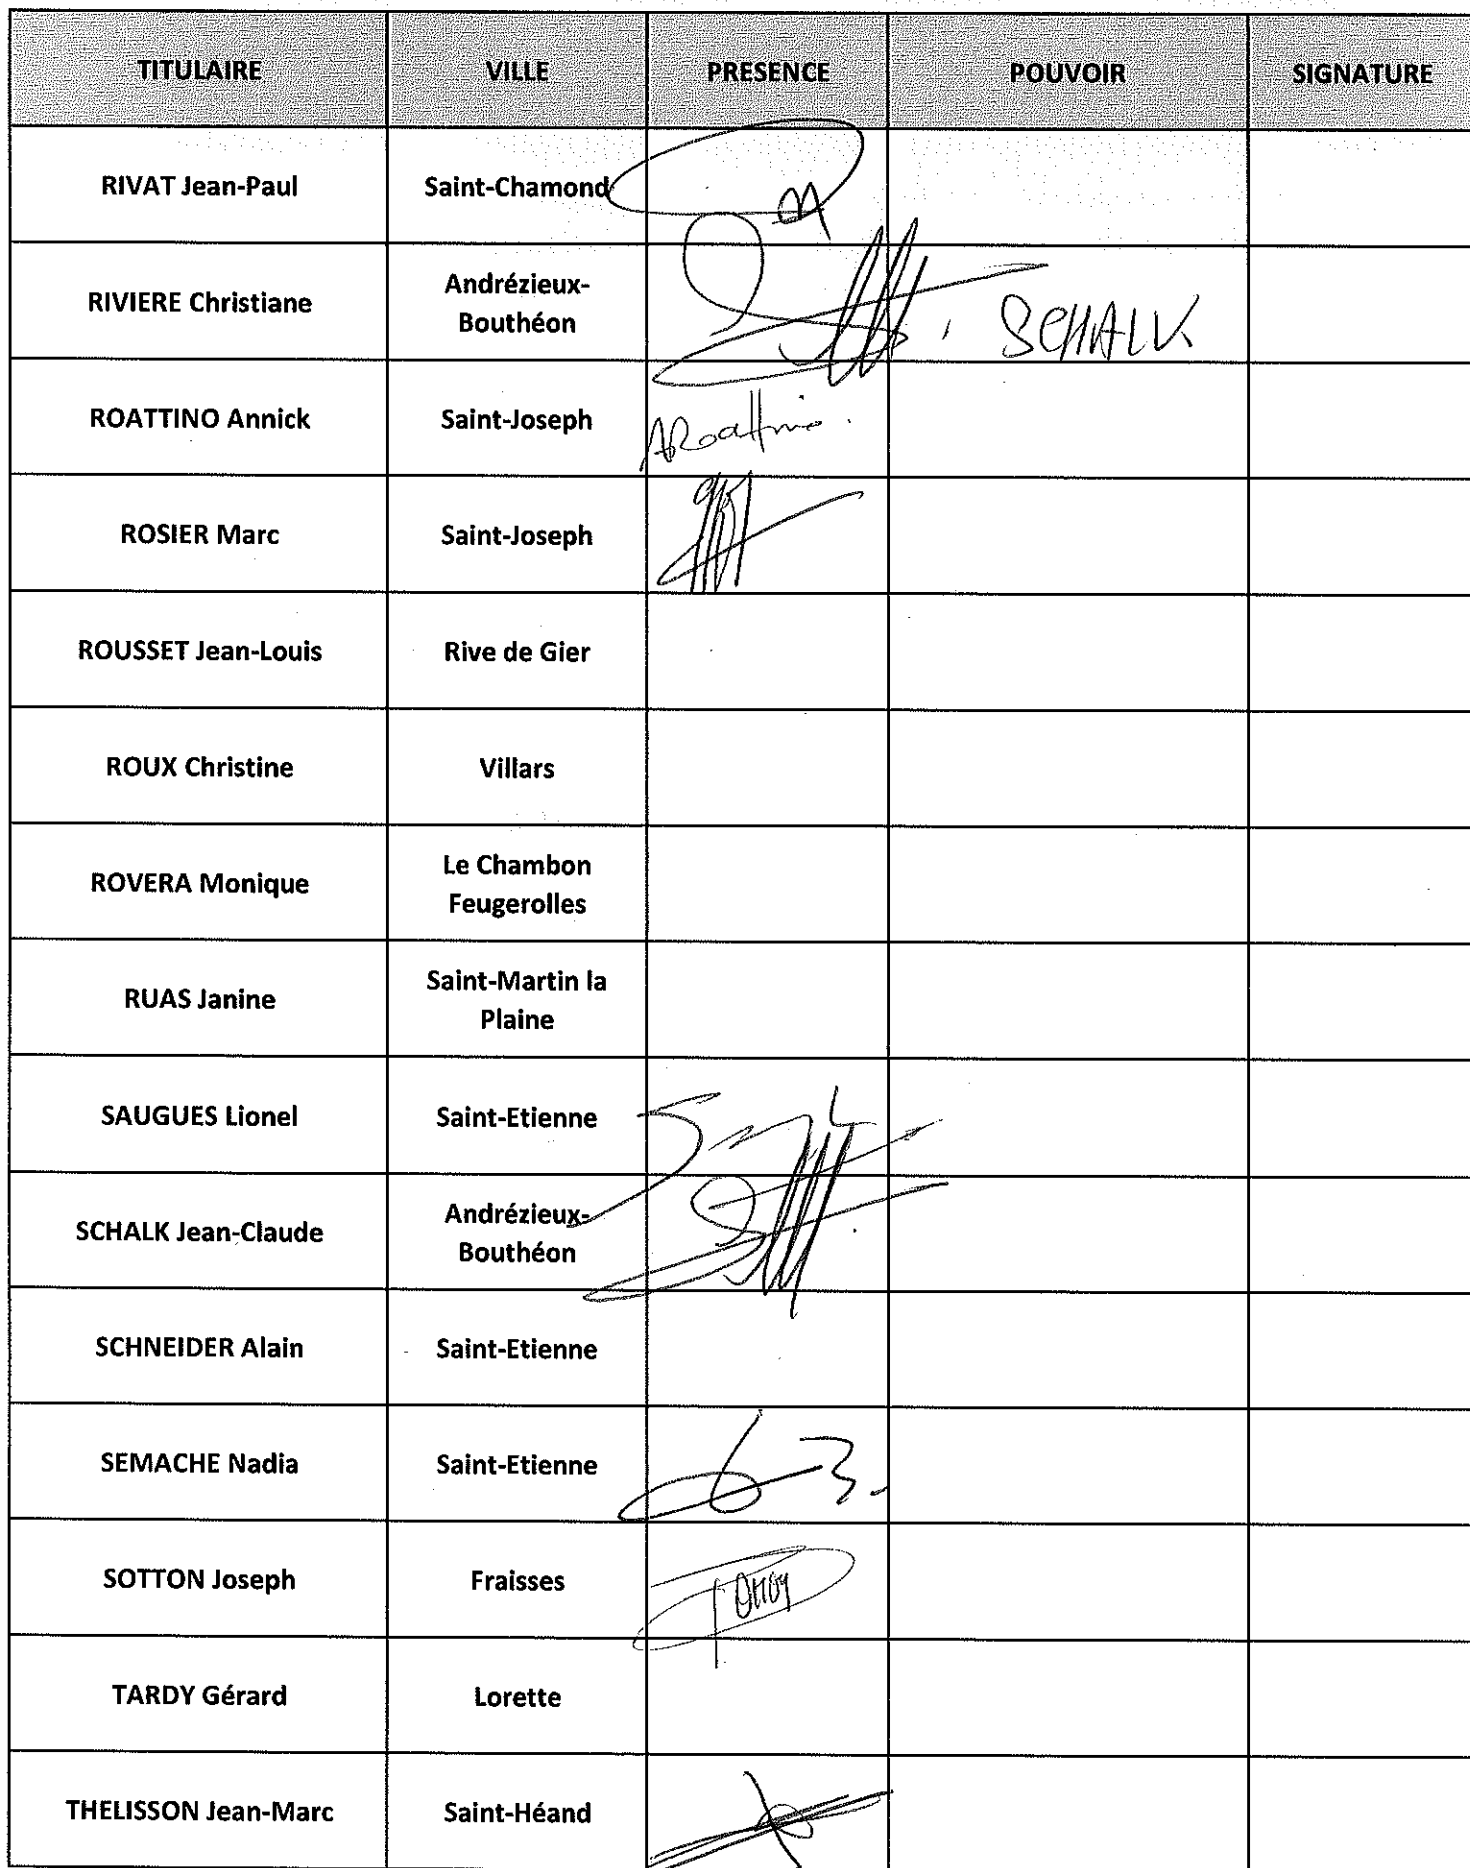 TITULAIRE VILLE PRESENCE POUVOIR SIGNATURE
RIVAT Jean-Paul Saint-Chamond
RIVIERE Christiane Andrézieux-
Bouthéon SCHALK
ROATTINO Annick Saint-Joseph ARoattino.
ROSIER Marc Saint-Joseph
ROUSSET Jean-Louis Rive de Gier
ROUX Christine Villars
ROVERA Monique Le Chambon
Feugerolles
RUAS Janine Saint-Martin la
Plaine
SAUGUES Lionel Saint-Etienne
SCHALK Jean-Claude Andrézieux-
Bouthéon
SCHNEIDER Alain Saint-Etienne
SEMACHE Nadia Saint-Etienne
SOTTON Joseph Fraisses
TARDY Gérard Lorette
THELISSON Jean-Marc Saint-Héand